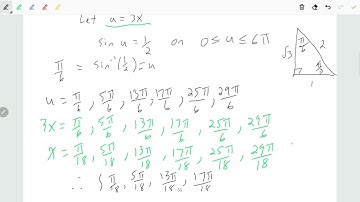 Let u = 3x
sin u = 1/2 on 0 ≤ u ≤ 6π
π/6 = sin⁻¹(1/2) = u
√3 π/6 2 π/3 1
u = π/6, 5π/6, 13π/6, 17π/6, 25π/6, 29π/6
3x = π/6, 5π/6, 13π/6, 17π/6, 25π/6, 29π/6
x = π/18, 5π/18, 13π/18, 17π/18, 25π/18, 29π/18
∴ { π/18, 5π/18, 13π/18, 17π/18